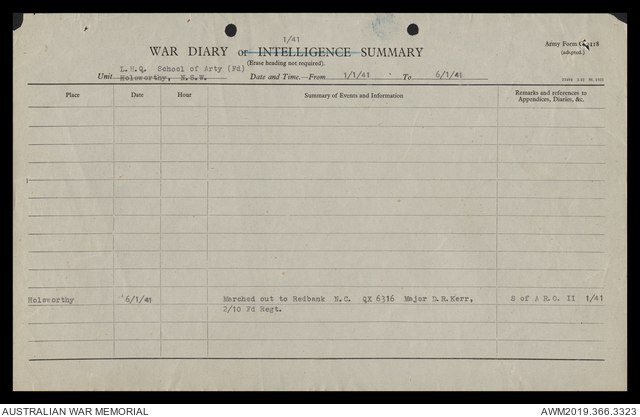 1/41
WAR DIARY or INTELLIGENCE SUMMARY
Army Form C.2118
(adapted.)
(Erase heading not required).
L.H.Q. School of Arty (Fd)
Unit Holsworthy, N.S.W. Date and Time.—From 1/1/41 To 6/1/41
Place Date Hour Summary of Events and Information Remarks and references to Appendices, Diaries, &c.
Holsworthy 6/1/41 Marched out to Redbank N.C. QX 6316 Major D.R.Kerr, S of A R.O. II 1/41
2/10 Fd Regt.
AUSTRALIAN WAR MEMORIAL AWM2019.366.3323